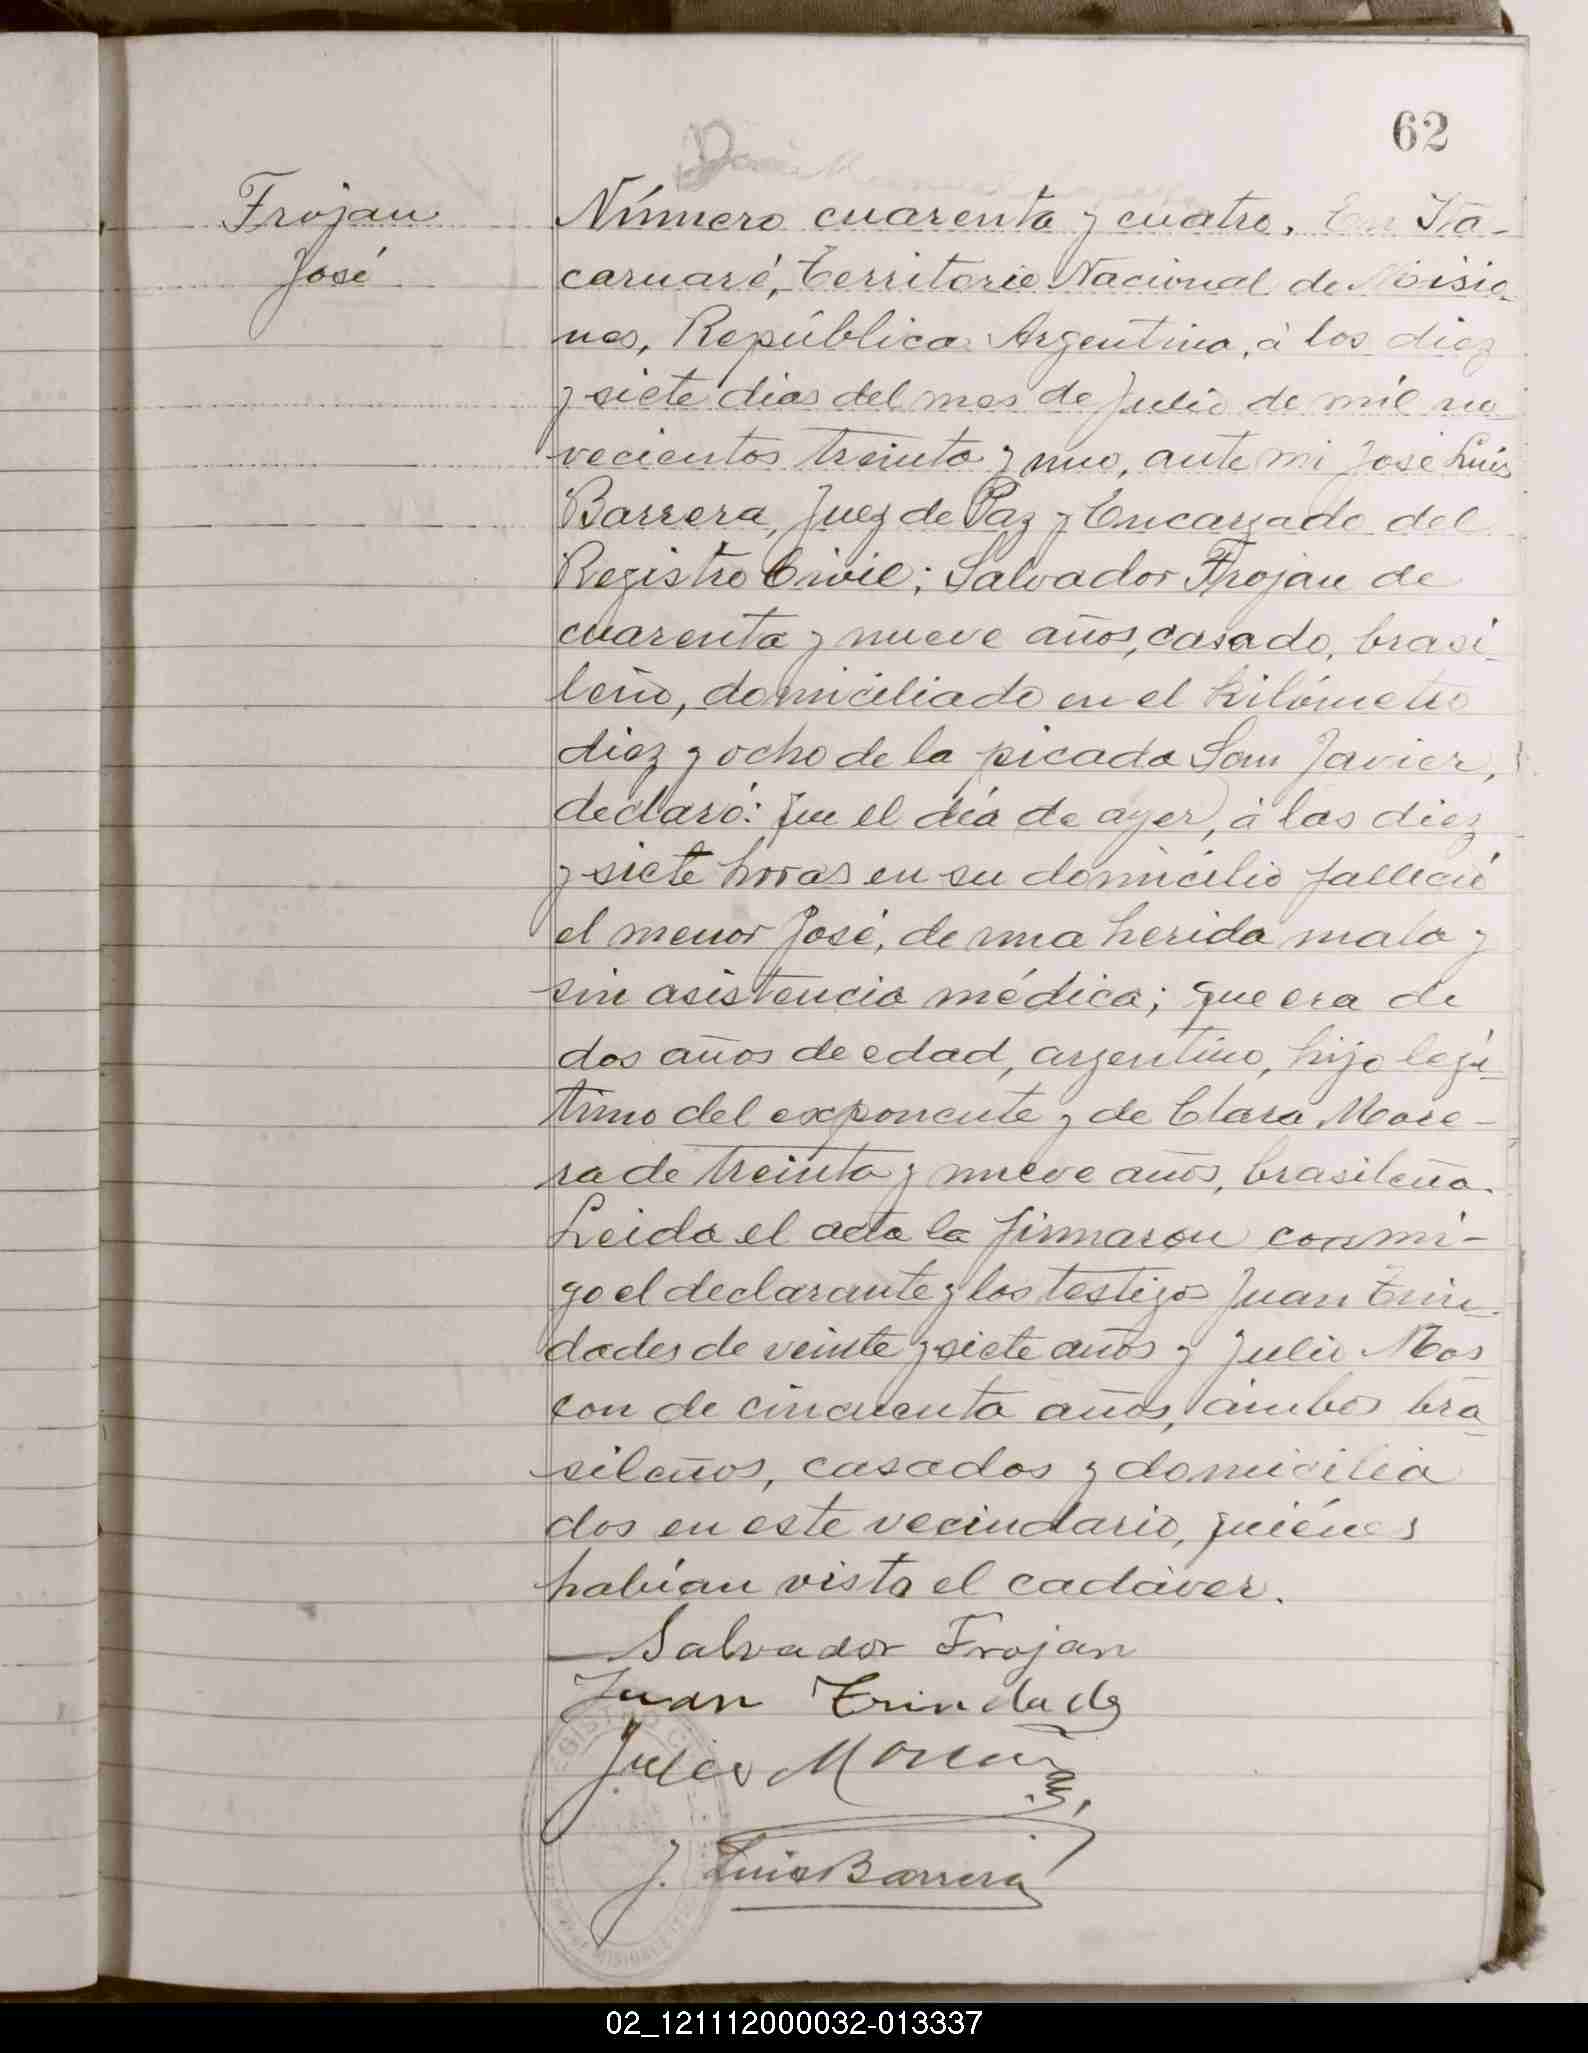 62
Frojan
José
Número cuarenta y cuatro. En Ita-
caruaré, Territorio Nacional de Misio-
nes, República Argentina, á los diez
y siete dias del mes de Julio de mil no-
vecientos treinta y uno, ante mi José Luis
Barrera, Juez de Paz y Encargado del
Registro Civil; Salvador Frojan de
cuarenta y nueve años, casado, brasi-
leño, domiciliado en el kilómetro
diez y ocho de la picada San Javier,
declaró: Que el día de ayer, á las diez
y siete horas en su domicilio falleció
el menor José, de una herida mala y
sin asistencia médica; que era de
dos años de edad, argentino, hijo legí-
timo del exponente y de Clara More-
ra de treinta y nueve años, brasileña.
Leida el acta la firmaron conmi-
go el declarante y los testigos Juan Trin-
dades de veinte y siete años y Julio Mos
con de cincuenta años, ámbos bra-
sileños, casados y domicilia
dos en este vecindario, quiénes
habían visto el cadáver.
Salvador Frojan
Juan Trindade
Julio
J. Luis Barrera
REGISTRO
MISIONES
02_121112000032-013337